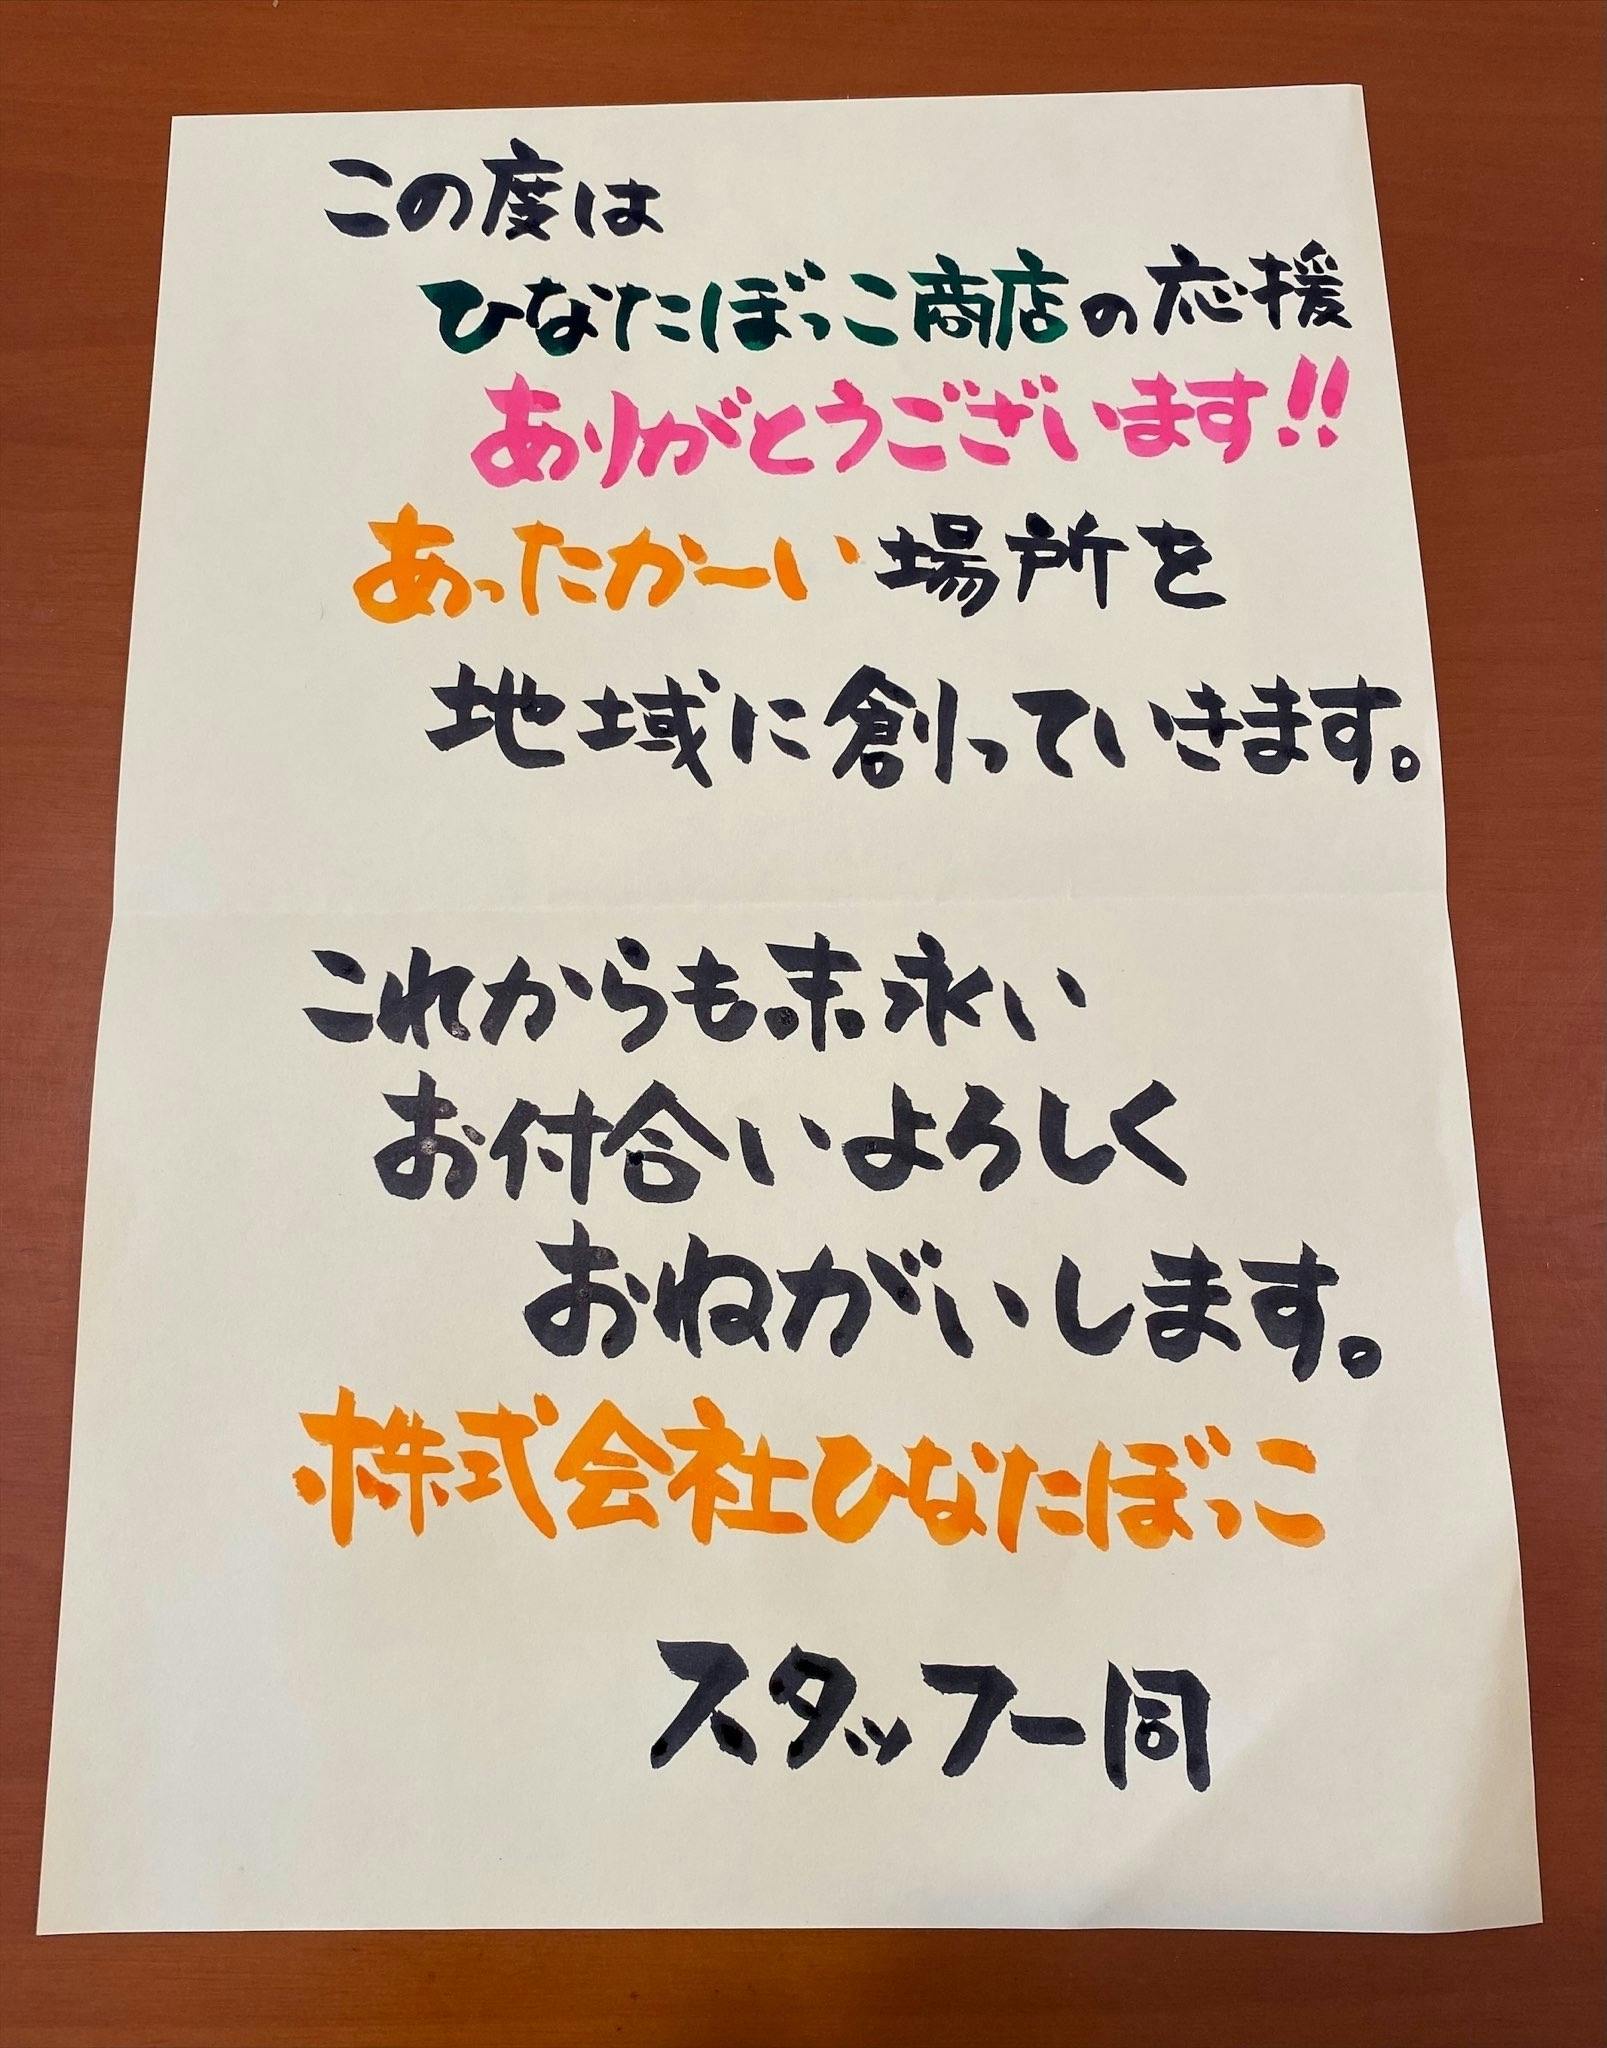 この度は
ひなたぼっこ商店の応援
ありがとうございます!!
あったかーい場所を
地域に創っていきます。
これからも末永い
お付合いよろしく
おねがいします。
株式会社ひなたぼっこ
スタッフ一同